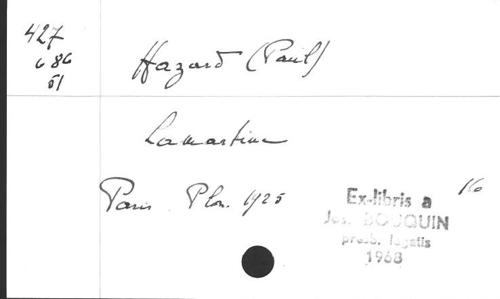 427
686
51
Hazard (Paul)
Lamartine
Paris Plon. 1925
16
Ex-libris a
Jos. BOUQUIN
presb. legatis
1968